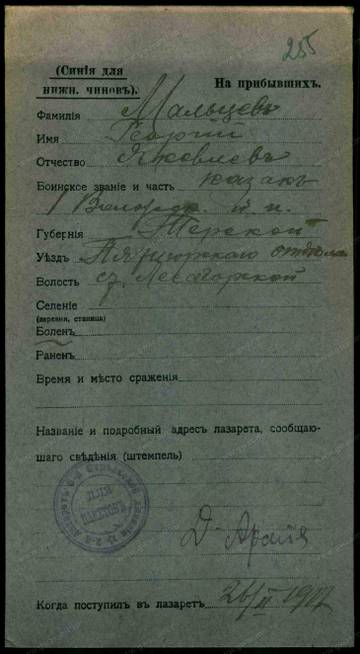 255
(Синія для
нижн. чиновъ).
На прибывшихъ.
Фамилія Мальцевъ
Имя Георгій
Отчество Яковлевъ
Воинское званіе и часть казакъ
1 п.
Губернія Терской
Уѣздъ Пятигорскаго отдѣла
Волость ст.
Селеніе
(деревня, станица)
Боленъ
Раненъ
Время и мѣсто сраженія
Названіе и подробный адресъ лазарета, сообщаю-
щаго свѣдѣнія (штемпель)
ДЛЯ
ПАКЕТОВЪ
Когда поступилъ въ лазаретъ 26/II 1917